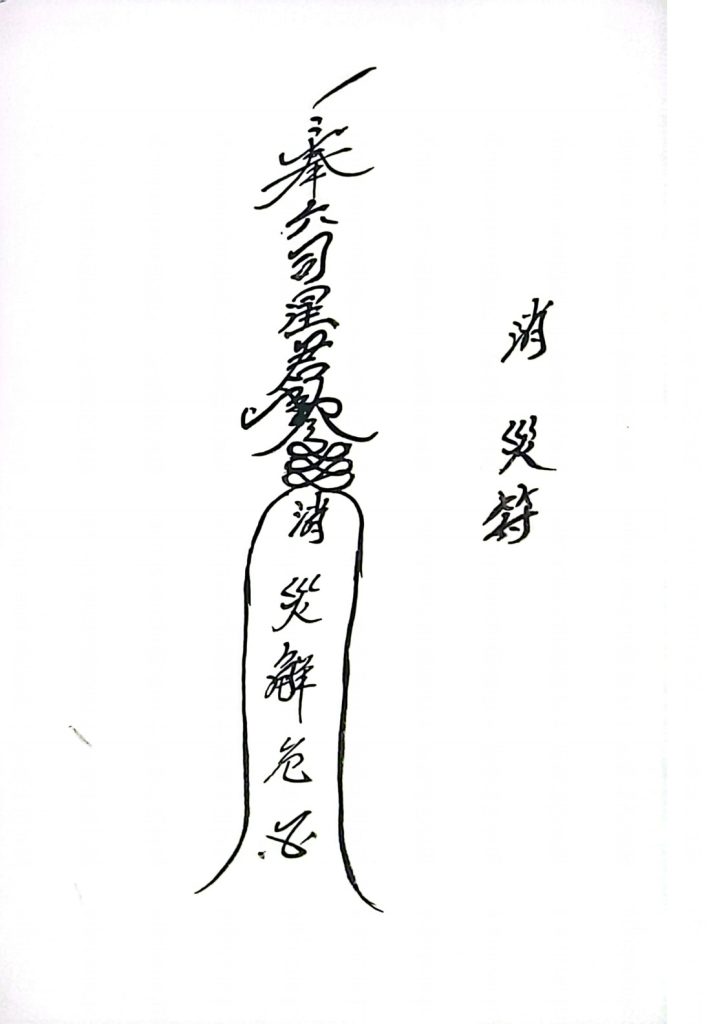 消災符
奉六司星君
消災解危